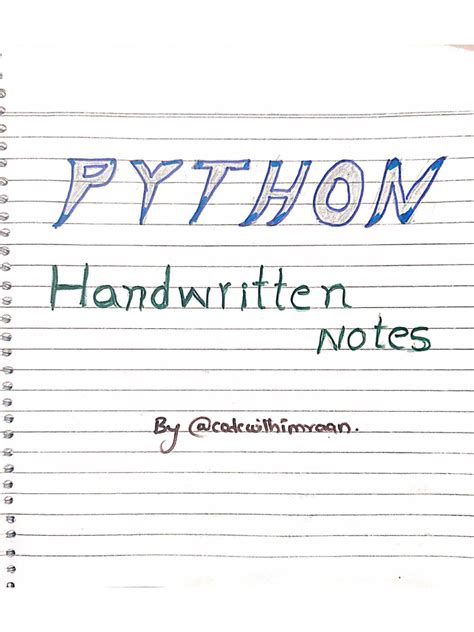 PYTHON
Handwritten
Notes
By @codewithimraan.